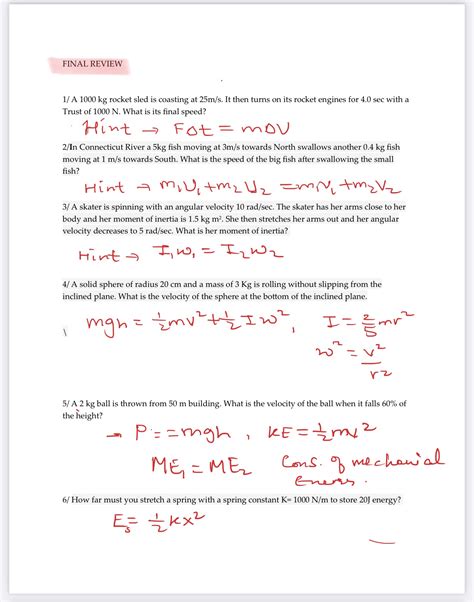 FINAL REVIEW
1/ A 1000 kg rocket sled is coasting at 25m/s. It then turns on its rocket engines for 4.0 sec with a
Trust of 1000 N. What is its final speed?
Hint → FΔt = mΔV
2/In Connecticut River a 5kg fish moving at 3m/s towards North swallows another 0.4 kg fish
moving at 1 m/s towards South. What is the speed of the big fish after swallowing the small
fish?
Hint → m₁U₁ + m₂U₂ = m₁V₁ + m₂V₂
3/ A skater is spinning with an angular velocity 10 rad/sec. The skater has her arms close to her
body and her moment of inertia is 1.5 kg m². She then stretches her arms out and her angular
velocity decreases to 5 rad/sec. What is her moment of inertia?
Hint → I₁w₁ = I₂w₂
4/ A solid sphere of radius 20 cm and a mass of 3 Kg is rolling without slipping from the
inclined plane. What is the velocity of the sphere at the bottom of the inclined plane.
mgh = 1/2 mv² + 1/2 I w², I = 2/5 mr²
w² = v²/r²
5/ A 2 kg ball is thrown from 50 m building. What is the velocity of the ball when it falls 60% of
the height?
→ P = = mgh , KE = 1/2 mv²
ME₁ = ME₂ Cons. of mechanical
6/ How far must you stretch a spring with a spring constant K= 1000 N/m to store 20J energy?
Eₛ = 1/2 kx²